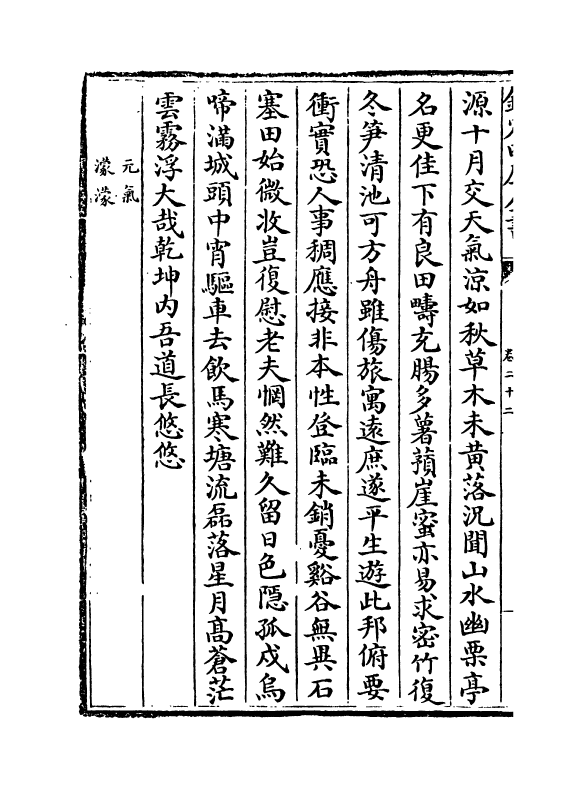 卷二十二
源十月交天氣涼如秋草木未黄落況聞山水幽栗亭
名更佳下有良田疇充腸多薯蕷崖蜜亦易求密竹復
冬笋清池可方舟雖傷旅寓遠庶遂平生遊此邦俯要
衝實恐人事稠應接非本性登臨未銷憂谿谷無異石
塞田始微收豈復慰老夫惘然難久留日色隠孤戍烏
啼滿城頭中宵驅車去飲馬寒塘流磊落星月髙蒼茫
雲霧浮大哉乾坤内吾道長悠悠
元氣
濛濛